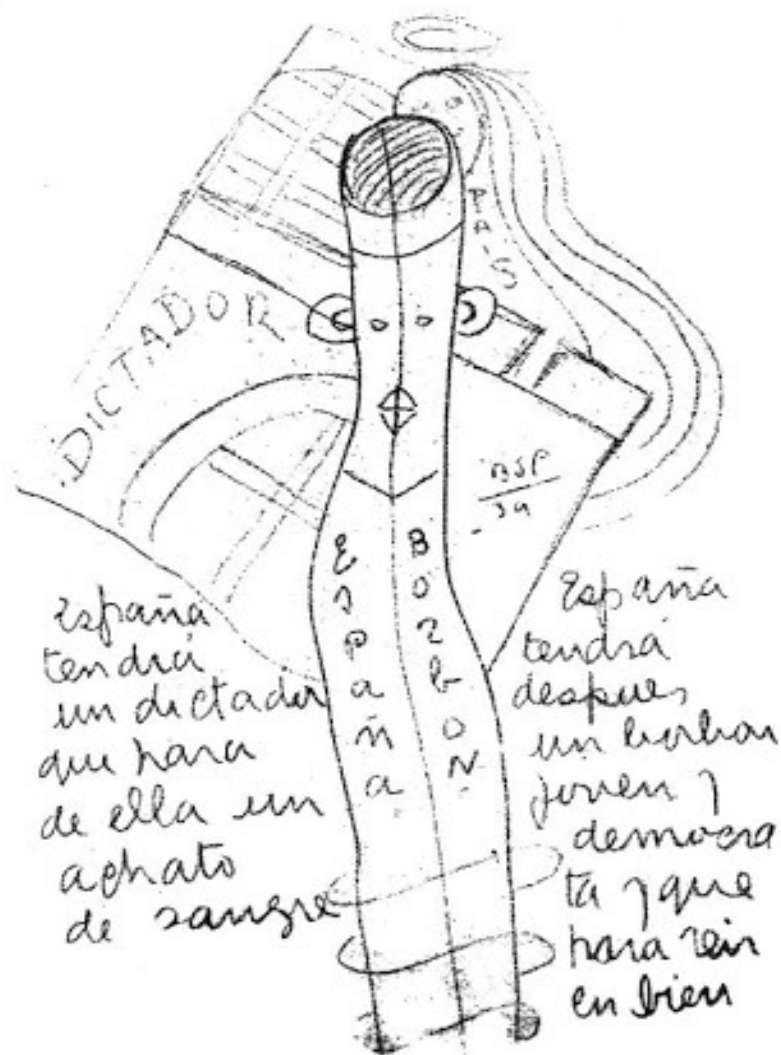 PAIS
DICTADOR
BSP
España
BorbON
España
tendra
un dictador
que hara
de ella un
de sangre
España
tendra
despues
un borbon
joven y
democra
ta y que
hara reir
en bien